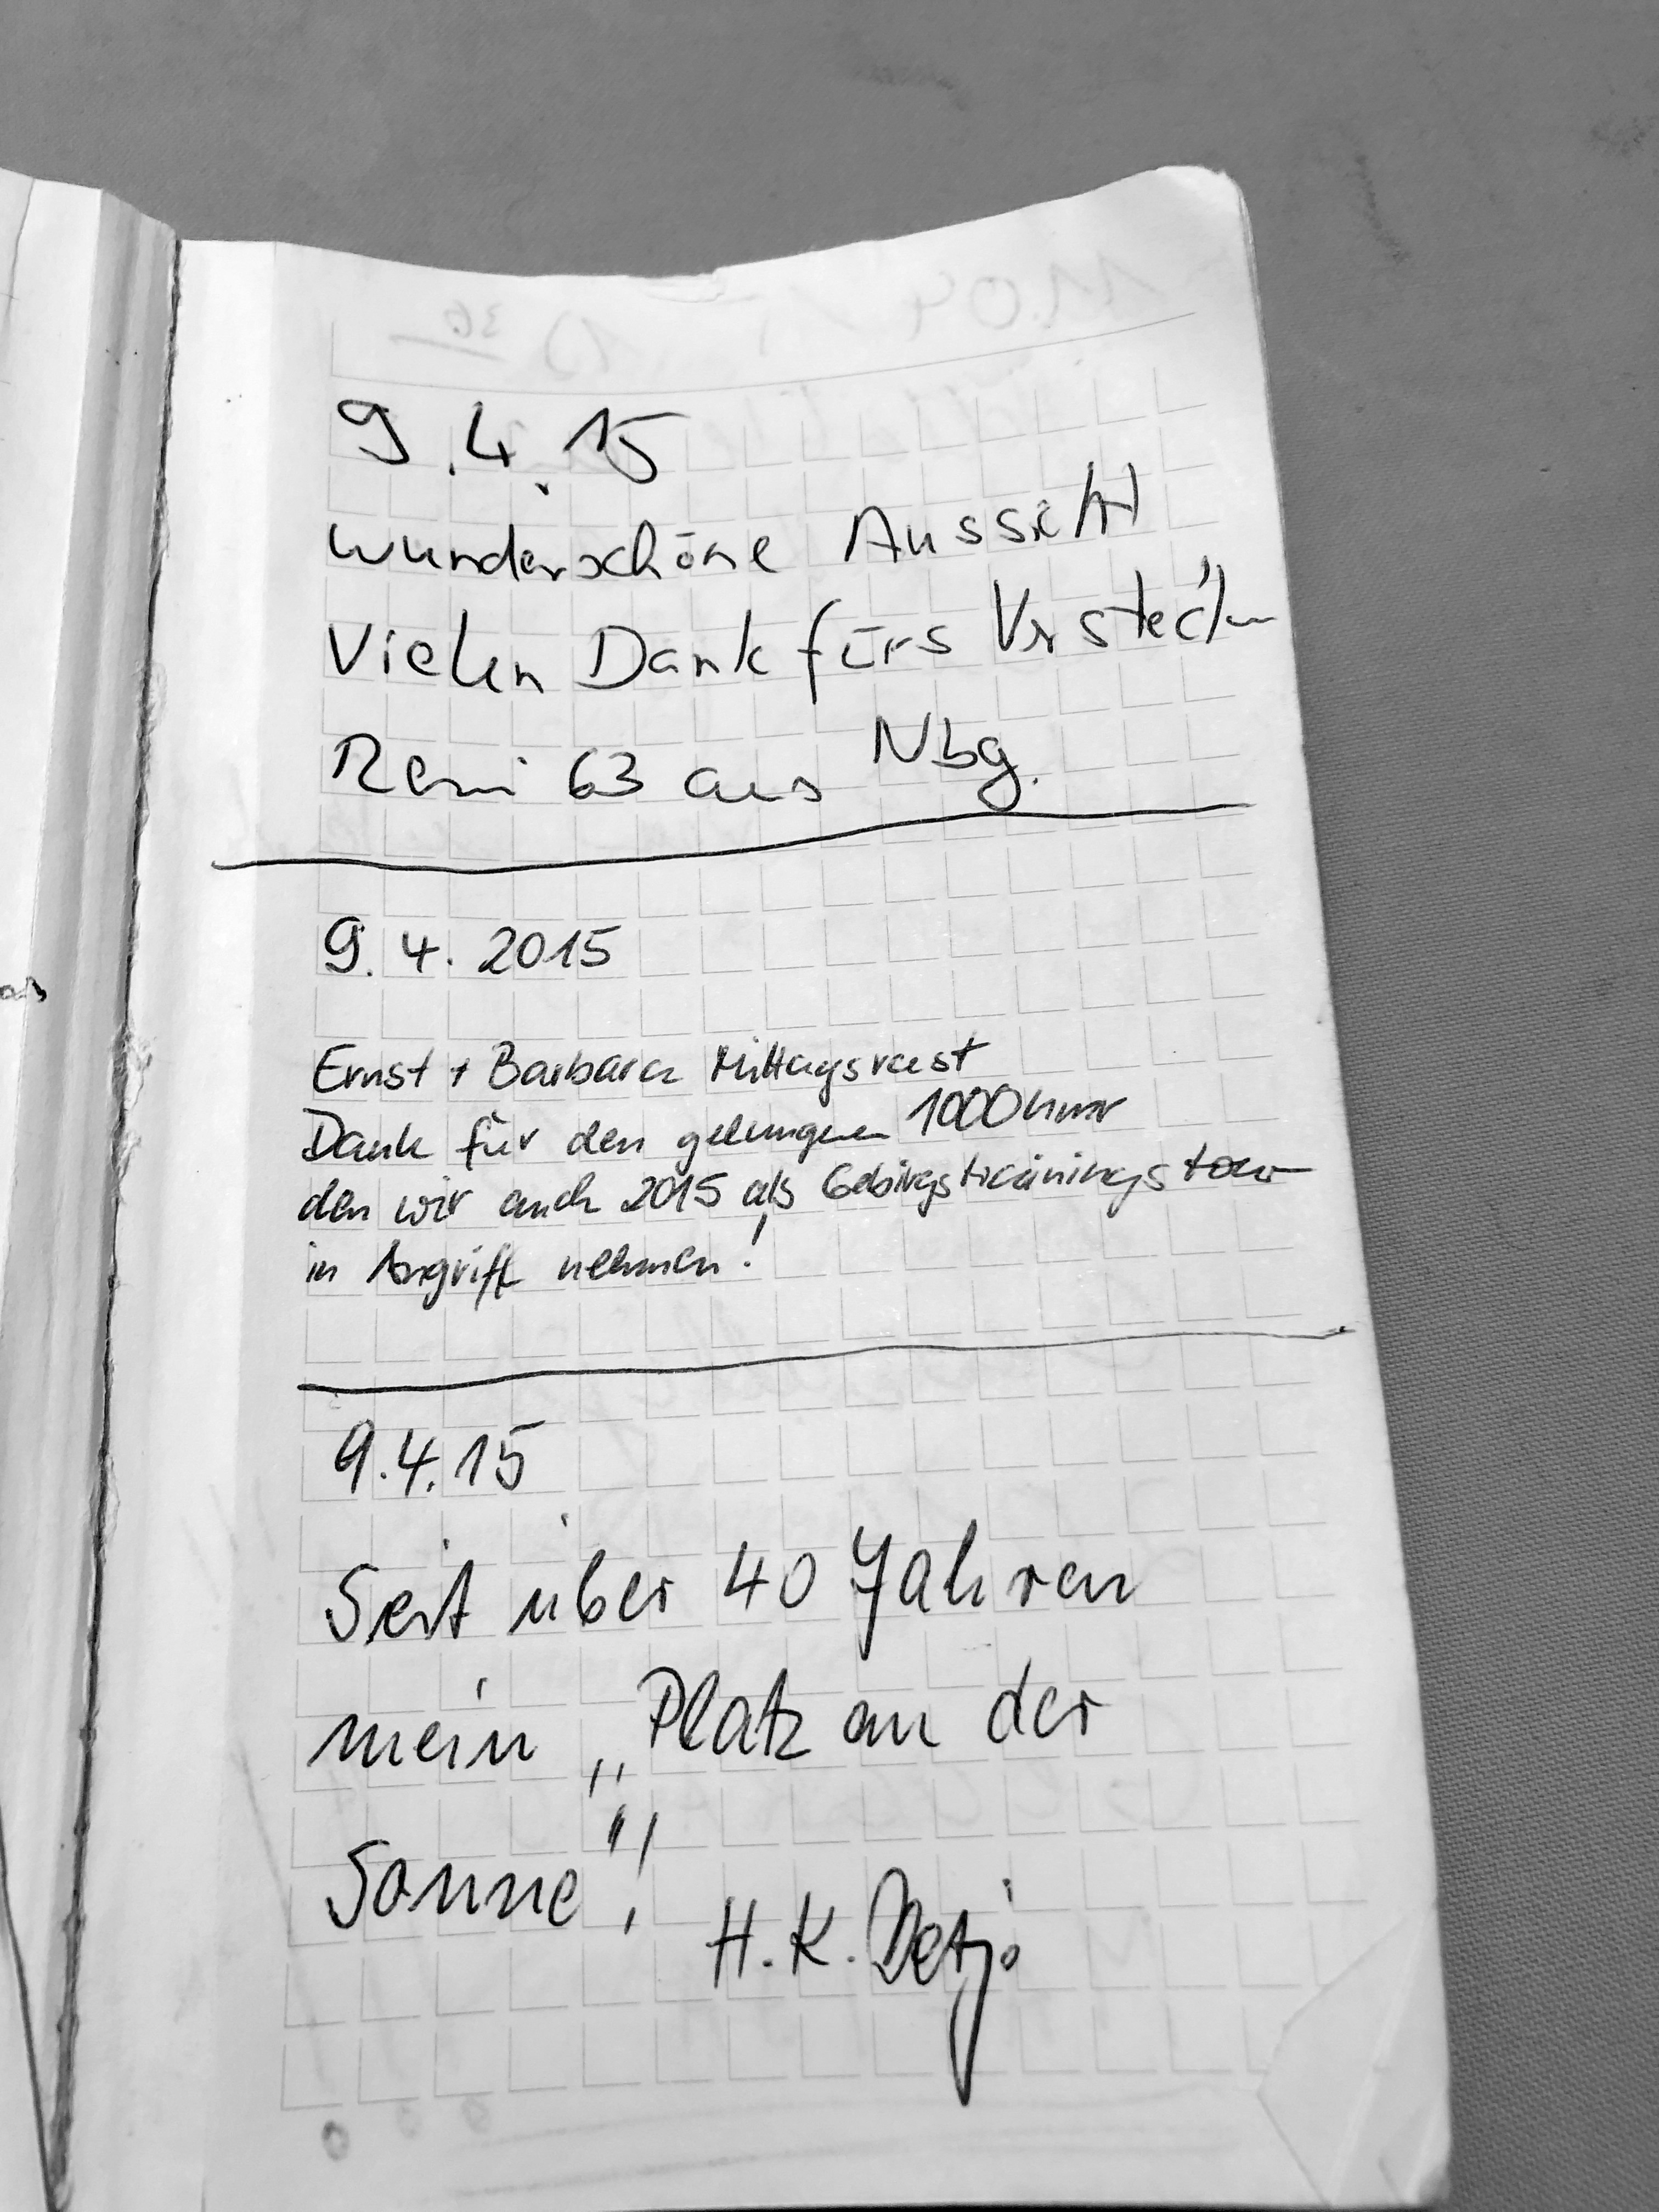 9.4.15
wunderschöne Aussicht
Vielen Dank fürs Verstecken
Remi 63 aus Nbg.
9.4.2015
Ernst + Barbara Mittagsrast
Dank für den gelungenen 1000hmr
den wir auch 2015 als Gebirgstrainingstour
in Angriff nehmen!
9.4.15
Seit über 40 Jahren
mein „Platz an der
Sonne"!
H.K.